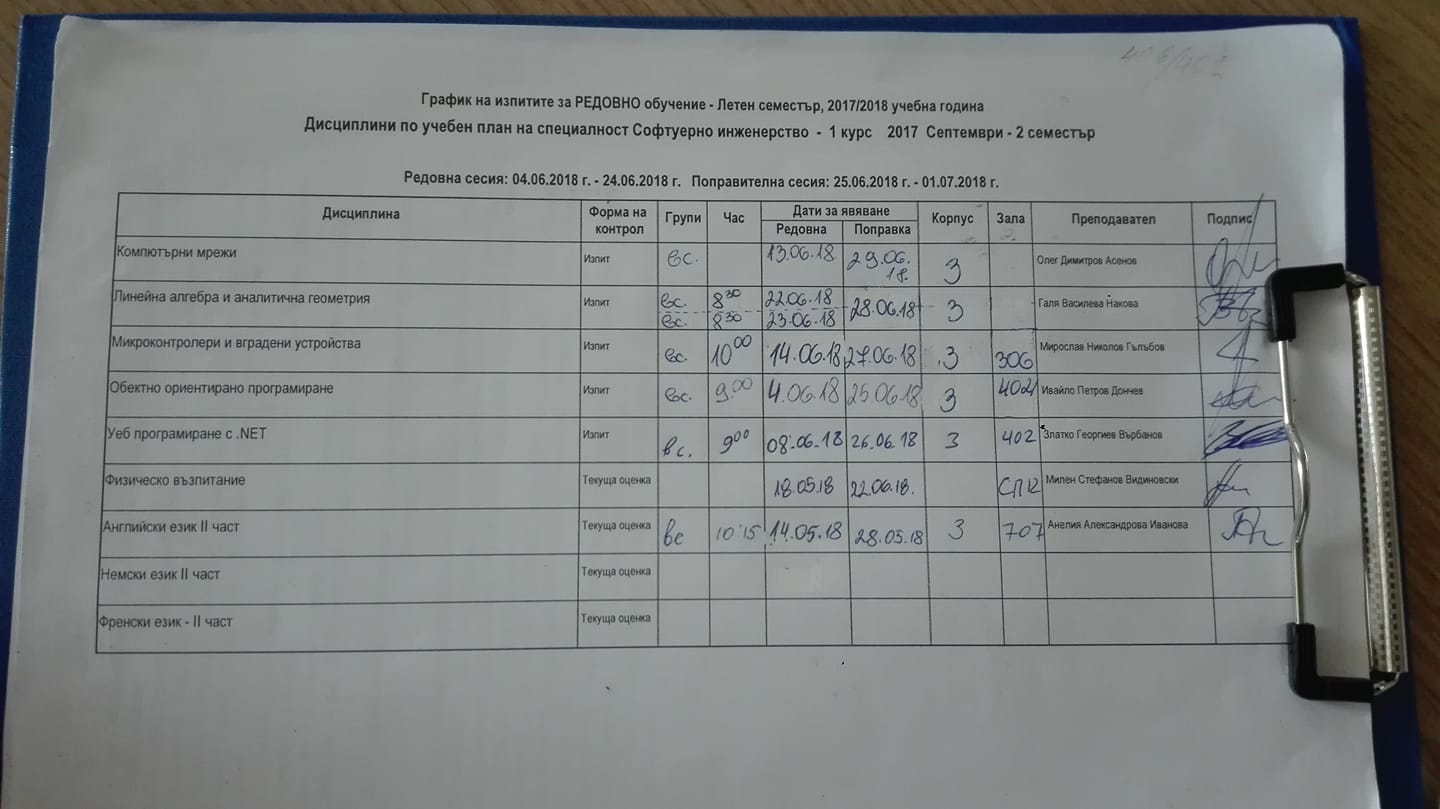 График на изпитите за РЕДОВНО обучение - Летен семестър, 2017/2018 учебна година
Дисциплини по учебен план на специалност Софтуерно инженерство - 1 курс 2017 Септември - 2 семестър
Редовна сесия: 04.06.2018 г. - 24.06.2018 г. Поправителна сесия: 25.06.2018 г. - 01.07.2018 г.
Дисциплина Форма на контрол Групи Час Дати за явяване Корпус Зала Преподавател Подпис
Редовна Поправка
Компютърни мрежи Изпит вс. 13.06.18 29.06.18. 3 Олег Димитров Асенов
Линейна алгебра и аналитична геометрия Изпит вс. 8³⁰ 22.06.18 28.06.18 3 Галя Василева Накова
вс. 8³⁰ 23.06.18
Микроконтролери и вградени устройства Изпит вс. 10⁰⁰ 14.06.18 27.06.18 3 306 Мирослав Николов Гълъбов
Обектно ориентирано програмиране Изпит вс. 9.⁰⁰ 4.06.18 25.06.18 3 402 Ивайло Петров Дончев
Уеб програмиране с .NET Изпит вс. 9⁰⁰ 08.06.18 26.06.18 3 402 Златко Георгиев Върбанов
Физическо възпитание Текуща оценка 18.05.18 22.06.18. Милен Стефанов Видиновски
Английски език II част Текуща оценка вс 10:15 14.05.18 28.05.18 3 707 Анелия Александрова Иванова
Немски език II част Текуща оценка
Френски език - II част Текуща оценка